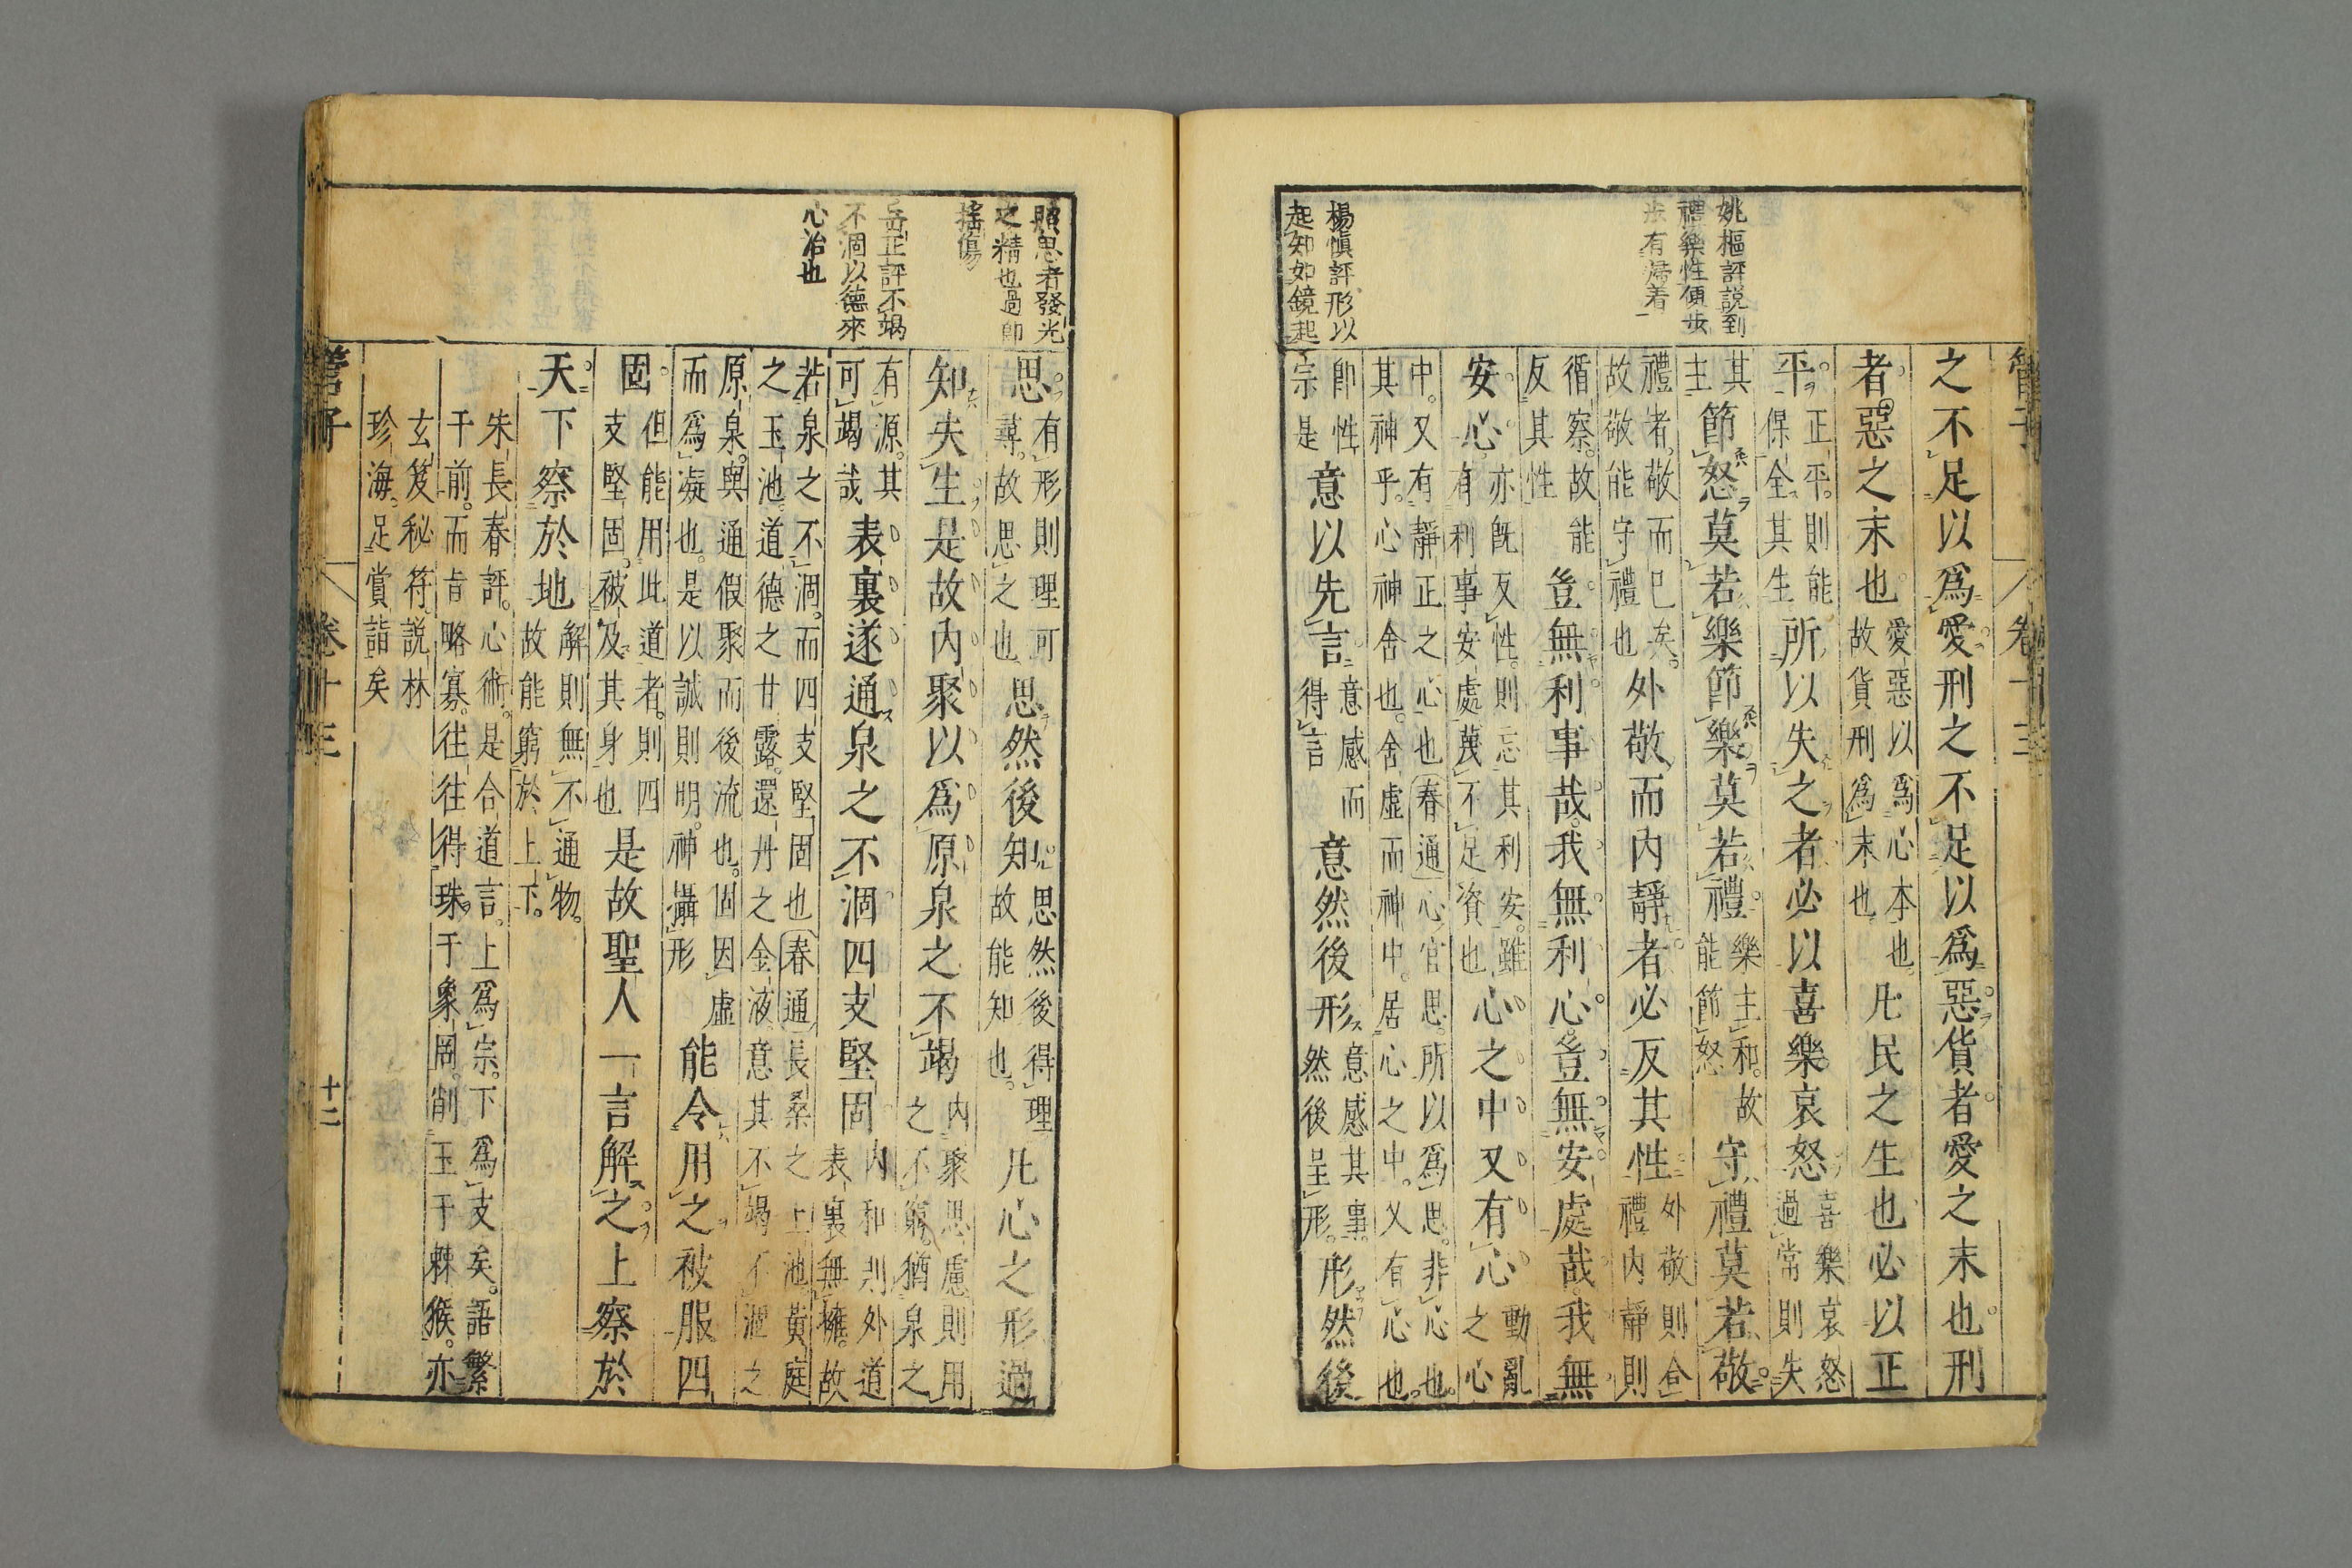 管子
卷十三
姚樞評説到
禮樂性便步
步有歸着
楊愼評形以
起知如鏡起
之不足以爲愛刑之不足以爲惡貨者愛之末也刑
者惡之末也愛惡以爲心本也故貨刑爲末也凡民之生也必以正
平正平則能保全其生所以失之者必以喜樂哀怒喜樂哀怒過常則失
其主節怒莫若樂節樂莫若禮樂主和故能節怒守禮莫若敬
禮者敬而已矣故敬能守禮也外敬而內靜者必反其性外敬則合禮內靜則
循察故能反其性豈無利事哉我無利心豈無安處哉我無
安心亦旣反性則忘其利安雖有利事安處蔑不足資也心之中又有心動亂之心
中又有靜正之心也春通心官思所以爲思非心也
其神乎心神舍也舍虛而神中居心之中又有心也
卽性宗是意以先言意感而得言意然後形意感其事然後呈形形然後
照思者發光
之精也過卽
搖傷
岳正評不竭
不涸以德來
心治也
思有形則理可尋故思之也思然後知思然後得理故能知也凡心之形過
知失生是故內聚以爲原泉之不竭內聚思慮則用之不窮猶泉之
有源其可竭哉表裏遂通泉之不涸四支堅固內和則外道表裏無擁故
若泉之不涸而四支堅固也春通長桑之上池黃庭
之玉池道德之甘露還丹之金液意其不竭不涸之
原泉與通假聚而後流也固因虛而爲凝也是以誠則明神攝形能令用之被服四
固但能用此道者則四支堅固被及其身也是故聖人一言解之上察於
天下察於地解則無不通物故能窮於上下
朱長春評心術是合道言上爲宗下爲支矣語繁
干前而旨略寡往往得珠于象岡削玉于棘猴亦
玄笈秘符説林
珍海足賞詣矣
管子
卷十三
十二